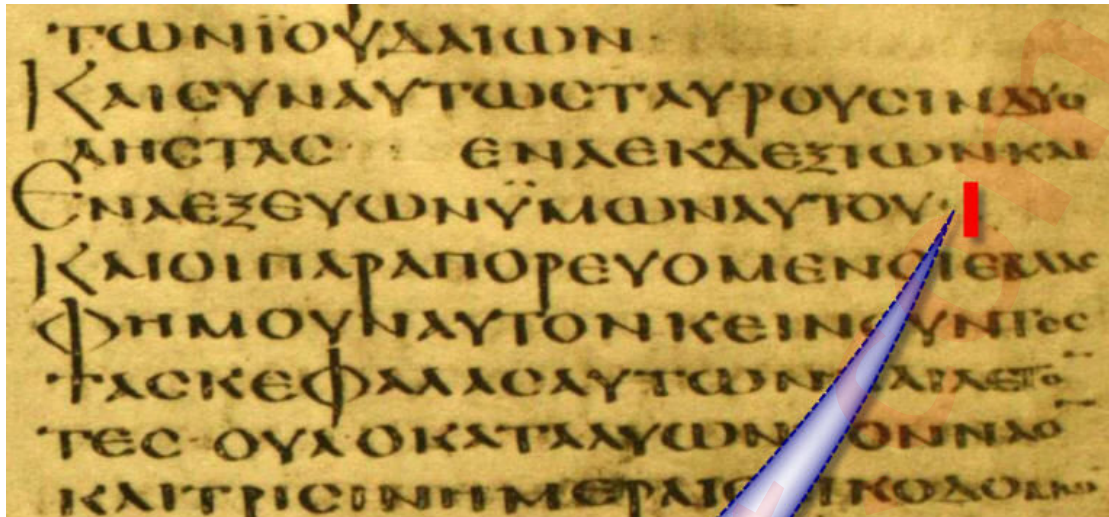 ΤΩΝΪΟΥΔΑΙΩΝ·
ΚΑΙϹΥΝΑΥΤΩϹΤΑΥΡΟΥϹΙΝΔΥΟ
ΛΗϹΤΑϹ· ΕΝΑΕΚΔΕΞΙΩΝΚΑΙ
ΕΝΑΕΞΕΥΩΝΫΜΩΝΑΥΤΟΥ·
ΚΑΙΟΙΠΑΡΑΠΟΡΕΥΟΜΕΝΟΙΕΒΛΑϹ
ΦΗΜΟΥΝΑΥΤΟΝΚΕΙΝΟΥΝΤΕϹ
ΤΑϹΚΕΦΑΛΑϹΑΥΤΩΝΚΑΙΛΕΓΟ̅
ΤΕϹ·ΟΥΑΟΚΑΤΑΛΥΩΝΤΟΝΝΑΟ̅
ΚΑΙΤΡΙϹΙΝΗΜΕΡΑΙϹΟΙΚΟΔΟ